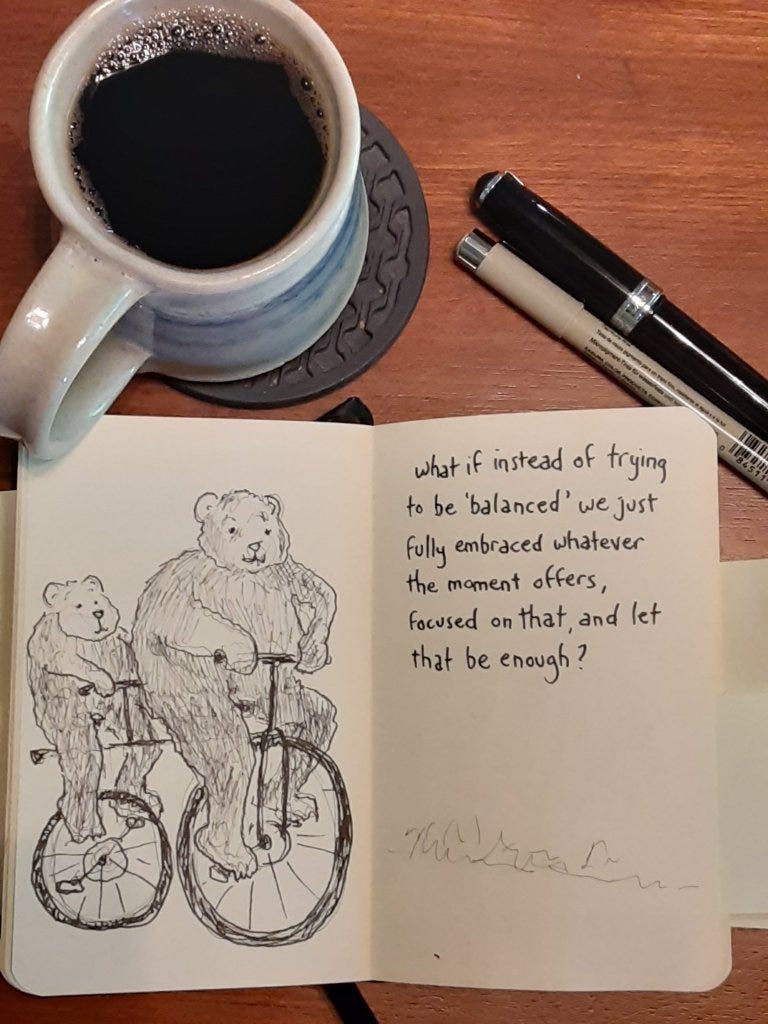 what if instead of trying
to be 'balanced' we just
fully embraced whatever
the moment offers,
focused on that, and let
that be enough?